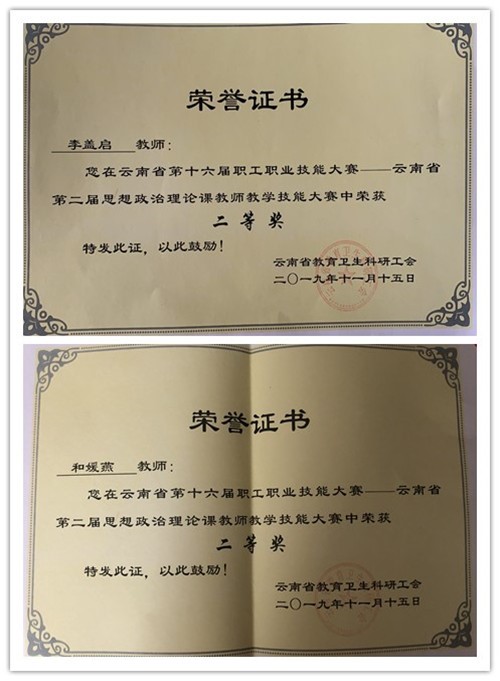 荣誉证书
李盖启 教师：
您在云南省第十六届职工职业技能大赛——云南省
第二届思想政治理论课教师教学技能大赛中荣获
二等奖
特发此证，以此鼓励！
云南省教育卫生科研工会
二〇一九年十一月十五日
荣誉证书
和媛燕 教师：
您在云南省第十六届职工职业技能大赛——云南省
第二届思想政治理论课教师教学技能大赛中荣获
二等奖
特发此证，以此鼓励！
云南省教育卫生科研工会
二〇一九年十一月十五日